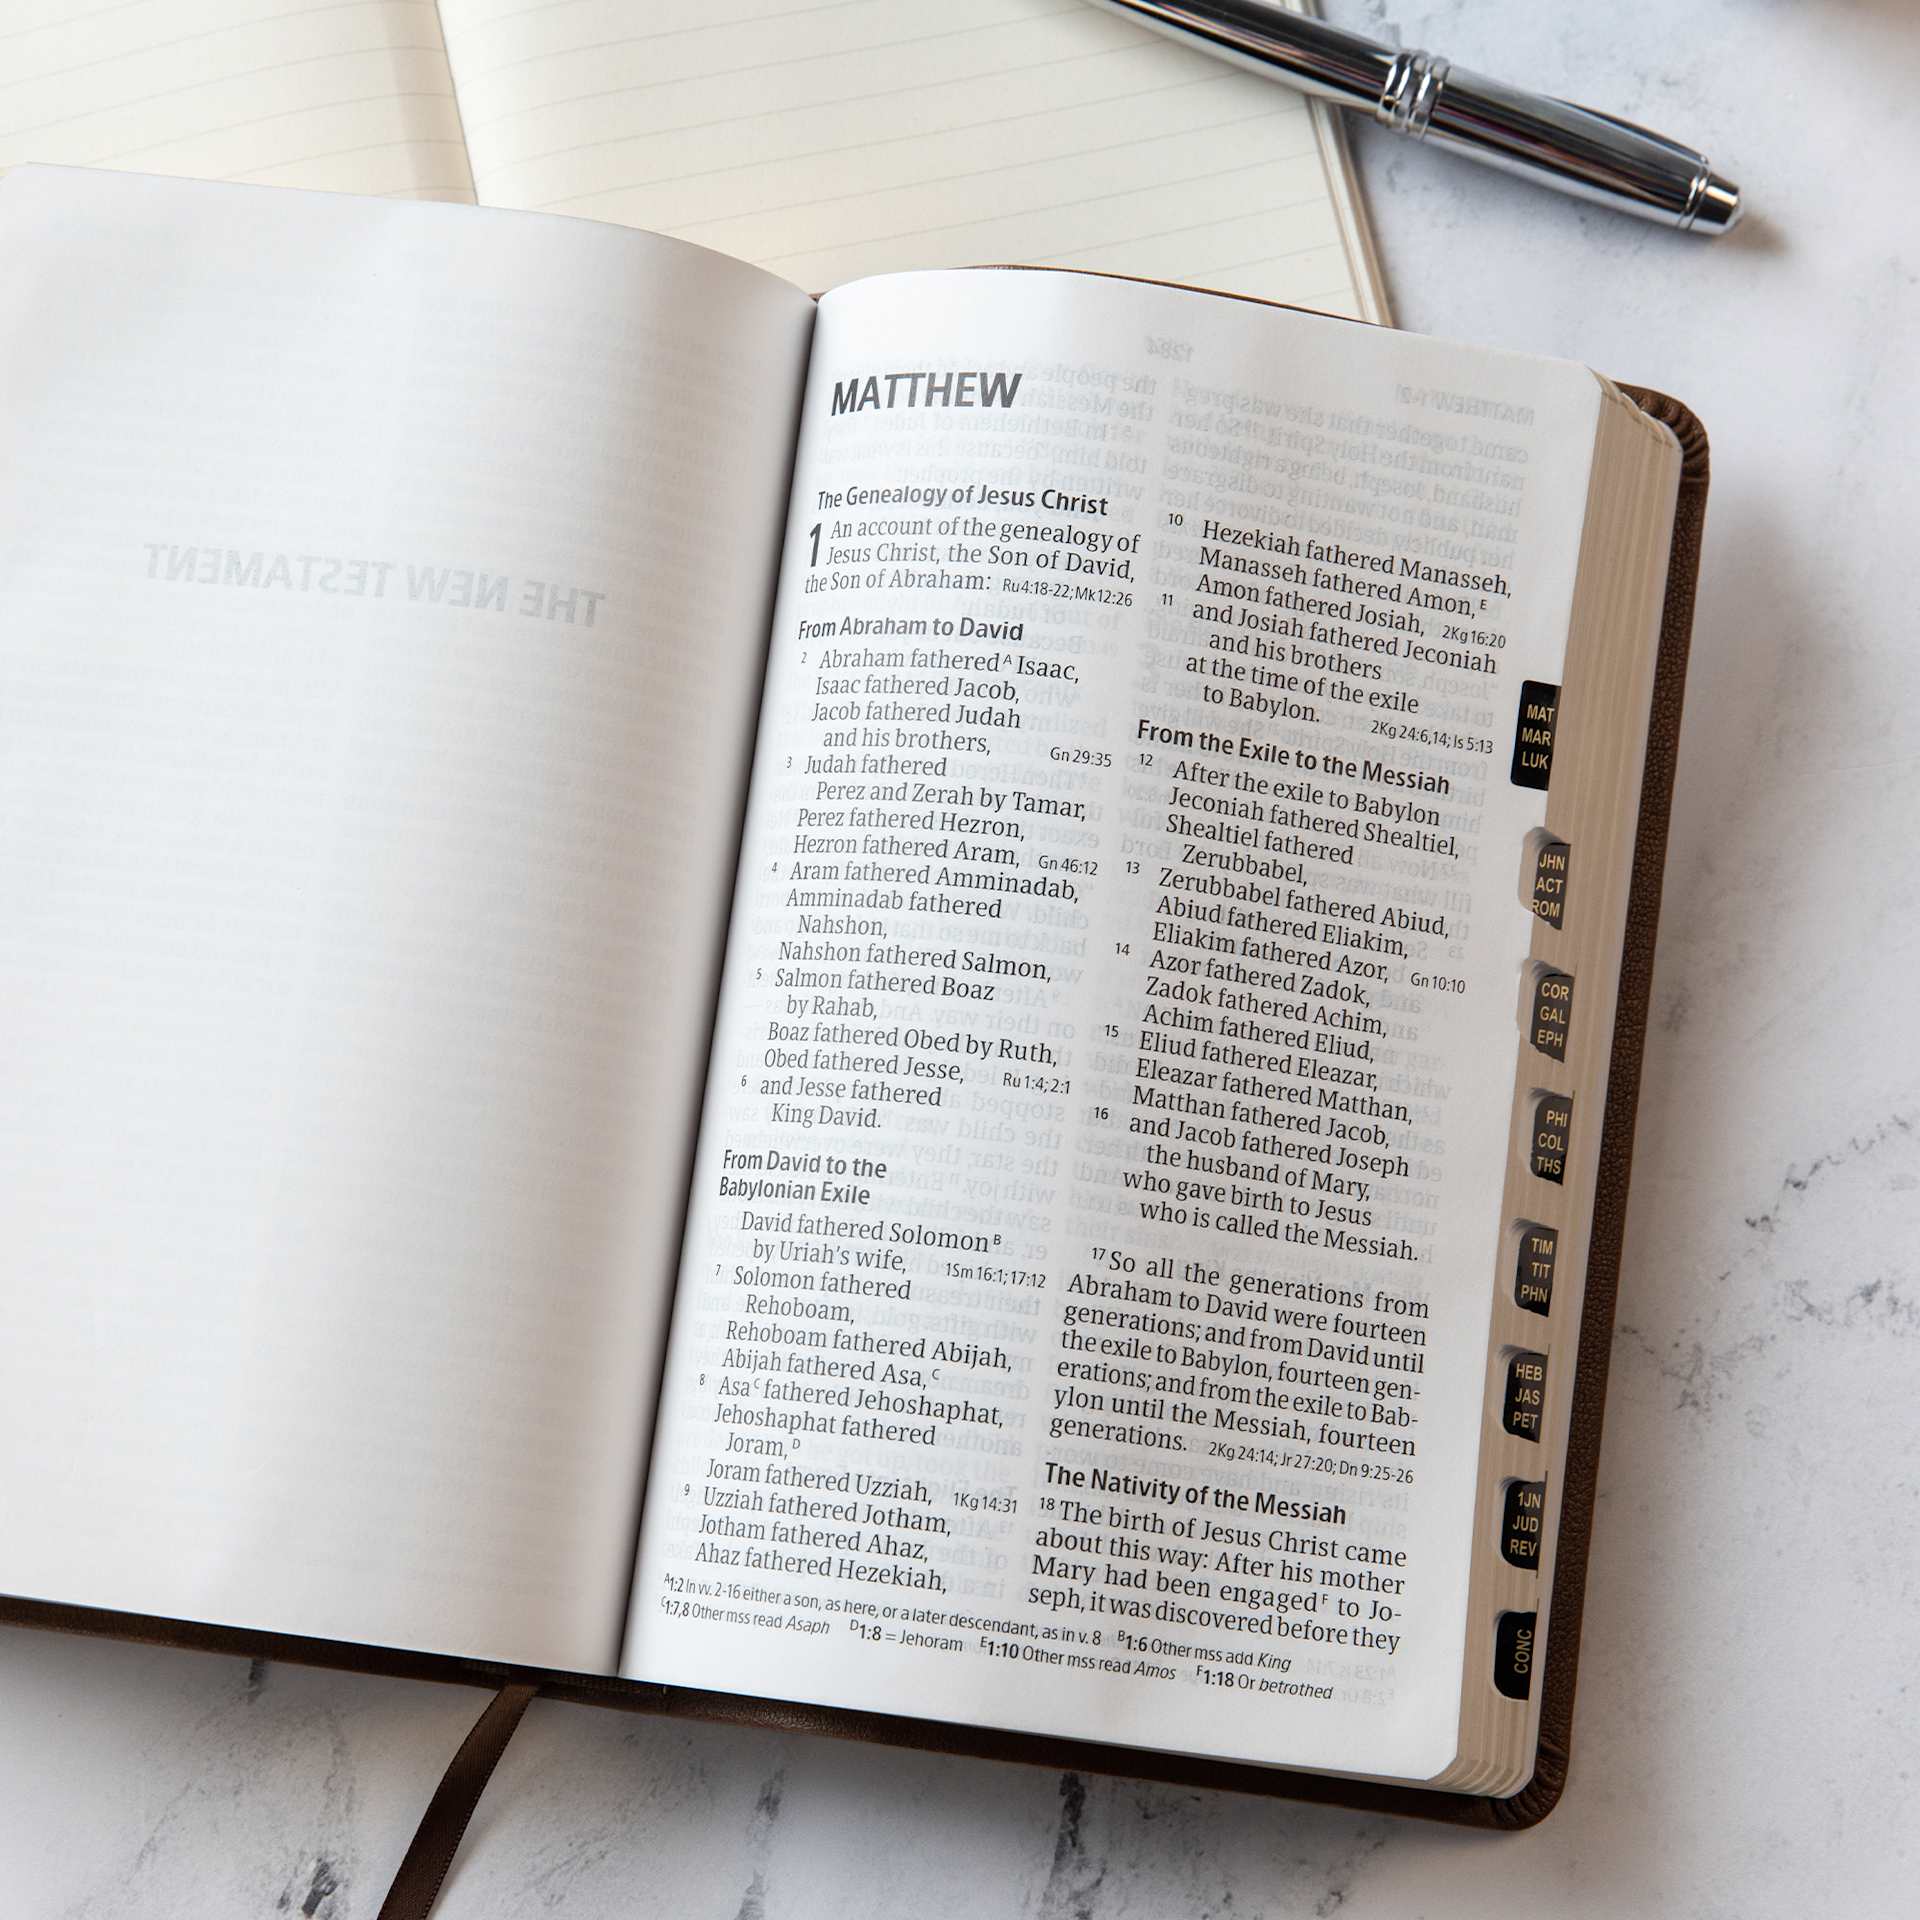 THE NEW TESTAMENT
MATTHEW
The Genealogy of Jesus Christ
1 An account of the genealogy of
Jesus Christ, the Son of David,
the Son of Abraham: Ru 4:18-22; Mk 12:26
From Abraham to David
2 Abraham fathered A Isaac,
Isaac fathered Jacob,
Jacob fathered Judah
and his brothers, Gn 29:35
3 Judah fathered
Perez and Zerah by Tamar,
Perez fathered Hezron,
Hezron fathered Aram, Gn 46:12
4 Aram fathered Amminadab,
Amminadab fathered
Nahshon,
Nahshon fathered Salmon,
5 Salmon fathered Boaz
by Rahab,
Boaz fathered Obed by Ruth,
Obed fathered Jesse, Ru 1:4; 2:1
6 and Jesse fathered
King David.
From David to the
Babylonian Exile
David fathered Solomon B
by Uriah's wife, 1Sm 16:1; 17:12
7 Solomon fathered
Rehoboam,
Rehoboam fathered Abijah,
Abijah fathered Asa, C
8 Asa C fathered Jehoshaphat,
Jehoshaphat fathered
Joram, D
Joram fathered Uzziah, 1Kg 14:31
9 Uzziah fathered Jotham,
Jotham fathered Ahaz,
Ahaz fathered Hezekiah,
10 Hezekiah fathered Manasseh,
Manasseh fathered Amon, E
Amon fathered Josiah, 2Kg 16:20
11 and Josiah fathered Jeconiah
and his brothers
at the time of the exile
to Babylon. 2Kg 24:6,14; Is 5:13
From the Exile to the Messiah
12 After the exile to Babylon
Jeconiah fathered Shealtiel,
Shealtiel fathered
Zerubbabel,
13 Zerubbabel fathered Abiud,
Abiud fathered Eliakim,
Eliakim fathered Azor, Gn 10:10
14 Azor fathered Zadok,
Zadok fathered Achim,
Achim fathered Eliud,
15 Eliud fathered Eleazar,
Eleazar fathered Matthan,
Matthan fathered Jacob,
16 and Jacob fathered Joseph
the husband of Mary,
who gave birth to Jesus
who is called the Messiah.
17 So all the generations from
Abraham to David were fourteen
generations; and from David until
the exile to Babylon, fourteen gen-
erations; and from the exile to Bab-
ylon until the Messiah, fourteen
generations. 2Kg 24:14; Jr 27:20; Dn 9:25-26
The Nativity of the Messiah
18 The birth of Jesus Christ came
about this way: After his mother
Mary had been engaged F to Jo-
seph, it was discovered before they
A 1:2 In vv. 2-16 either a son, as here, or a later descendant, as in v. 8 B 1:6 Other mss add King
C 1:7,8 Other mss read Asaph D 1:8 = Jehoram E 1:10 Other mss read Amos F 1:18 Or betrothed
MAT
MAR
LUK
JHN
ACT
ROM
COR
GAL
EPH
PHI
COL
THS
TIM
TIT
PHN
HEB
JAS
PET
1JN
JUD
REV
CONC